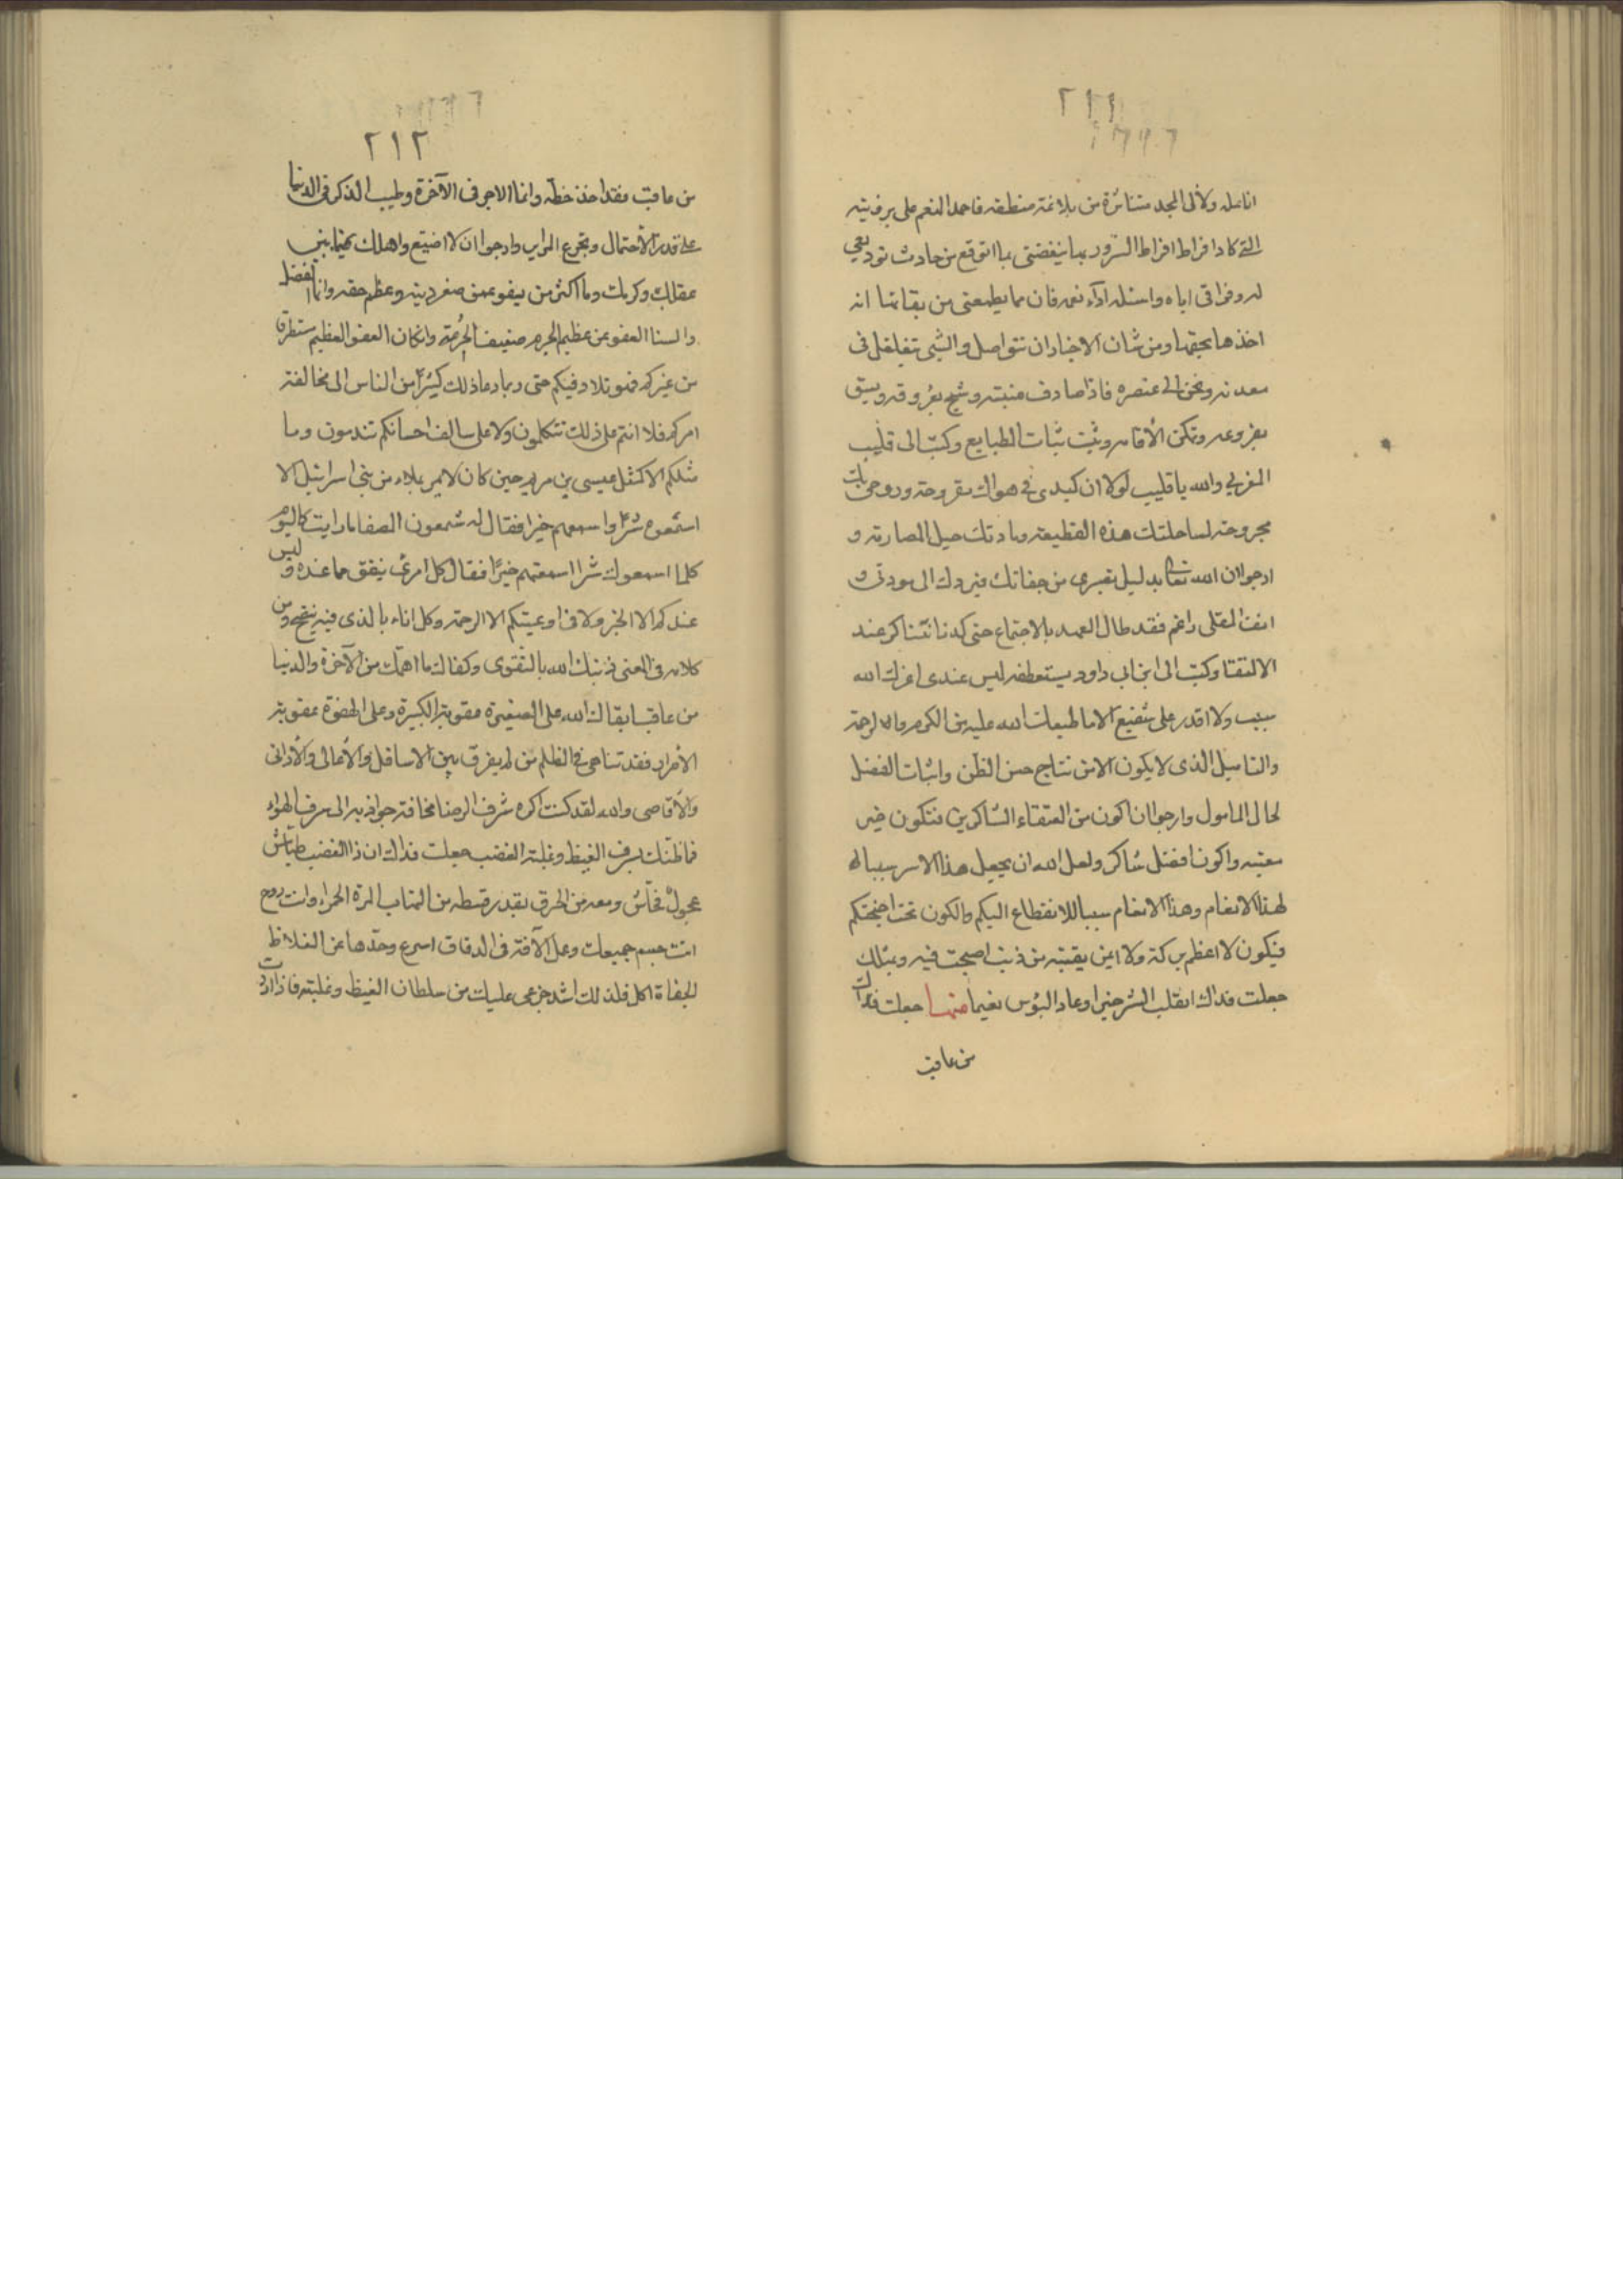 ٢١١
انامله ولألى المجد متناثرة من بلاغة منطقه فاحمد المنعم على برؤيته
التى كاد افراط السرور بها ينغصنى بما اتوقع من حادث توديعى
له وفراقى اياه واسئله اداء نعمه فان مما يطمعنى من بقائها انه
اخذها بحقها ومن شان الاخبار ان تتواصل والشى تغلغل فى
معدنه ونحن الى عنصره فاذا صادف منبته وشج بعروقه وبسق
بفروعه وتمكن الأقامه وثبت ثبات الطبايع وكتب الى قليب
المغربى والله يا قليب لولا ان كبدى فى هواك مقروحة وروحى بك
مجروحة لساجلتك هذه القطيعة وماددتك حبل المصارمة و
ارجو ان الله تعالى يديل صبرى من جفائك فيردك الى مودتى و
انف القلى راغم فقد طال العهد بالاجتماع حتى كدنا نتناكر عند
الالتقا وكتب الى ابن ابى داود يستعطفه ليس عندى اعزك الله
سبب ولا اقدر على شفيع الا ما طبعك الله عليه من الكرم والرحمة
والتاميل الذى لا يكون الا من نتاج حسن الظن واثبات الفضل
لحال المامول وارجو ان اكون من العتقاء الشاكرين فتكون خير
معتب واكون افضل شاكر ولعل الله ان يجعل هذا الامر سببا
لهذا الانعام وهذا الانعام سببا للانقطاع اليكم والكون تحت اجنحتكم
فيكون لا اعظم بركة ولا اثمن بقية من ذنب اصبحت فيه وبمثلك
جعلت فداك انقلب الشر خيرا وعاد البؤس نعيما منها جعلت فداك
من عاقب
٢١٢
من عاقب فقد اخذ حظه وانما الاجر فى الآخرة وطيب الذكر فى الدنيا
على قدر الأحتمال وتجرع المراير وارجو ان لا اضيع واهلك فيما بين
عقلك وكرمك وما اكثر من يعفو عمن صغر ذنبه وعظم حقه وانما الفضل
والسنا العفو عن عظيم الجرم ضعيف الحُرمة وان كان العفو العظيم مستطرفا
من غيركم فهو تلاد فيكم حتى ربما دعا ذلك كثيرًا من الناس الى مخالفة
امركم فلا انتم على ذلك تتكلمون ولا على سالف احسانكم تندمون وما
مثلكم الا كمثل عيسى بن مريم حين كان لا يمر بملاء من بنى اسرائيل الا
اسمعوه شرًا واسمعهم خيرا فقال له شمعون الصفا ما رايت كاليوم
كلما اسمعوك شرا اسمعتهم خيرًا فقال كل امرئ ينفق مما عنده وليس
عندكم الا الخير ولا فى اوعيتكم الا الرحمة وكل اناء بالذى فيه ينضح ومن
كلامه فى المعنى زينك الله بالتقوى وكفاك ما اهمّك من الآخرة والدنيا
من عاقب ابقاك الله على الصغيرة عقوبة الكبيرة وعلى الهفوة عقوبة
الأصرار فقد تناهى فى الظلم ومن لم يفرق بين الاسافل والأعالى والأدانى
والأقاصى والله لقد كنت اكره شرف الرضا مخافة جواذبه الى سرف الهواء
فما ظنك بسرف الغيظ وغلبة الغضب جعلت فداك ان ذا الغضب طيّاش
عجولٌ فحّاش ومعه من الخرق بقدر قسطه من التهاب المرة الحمراء وانت روح
انت جسم جميعك وعمل الآفة فى الدقاق اسرع وحدّها عن الغلاظ
الجفاة اكل فلذلك اشد جزعى عليك من سلطان الغيظ وغلبته فاذا اردت